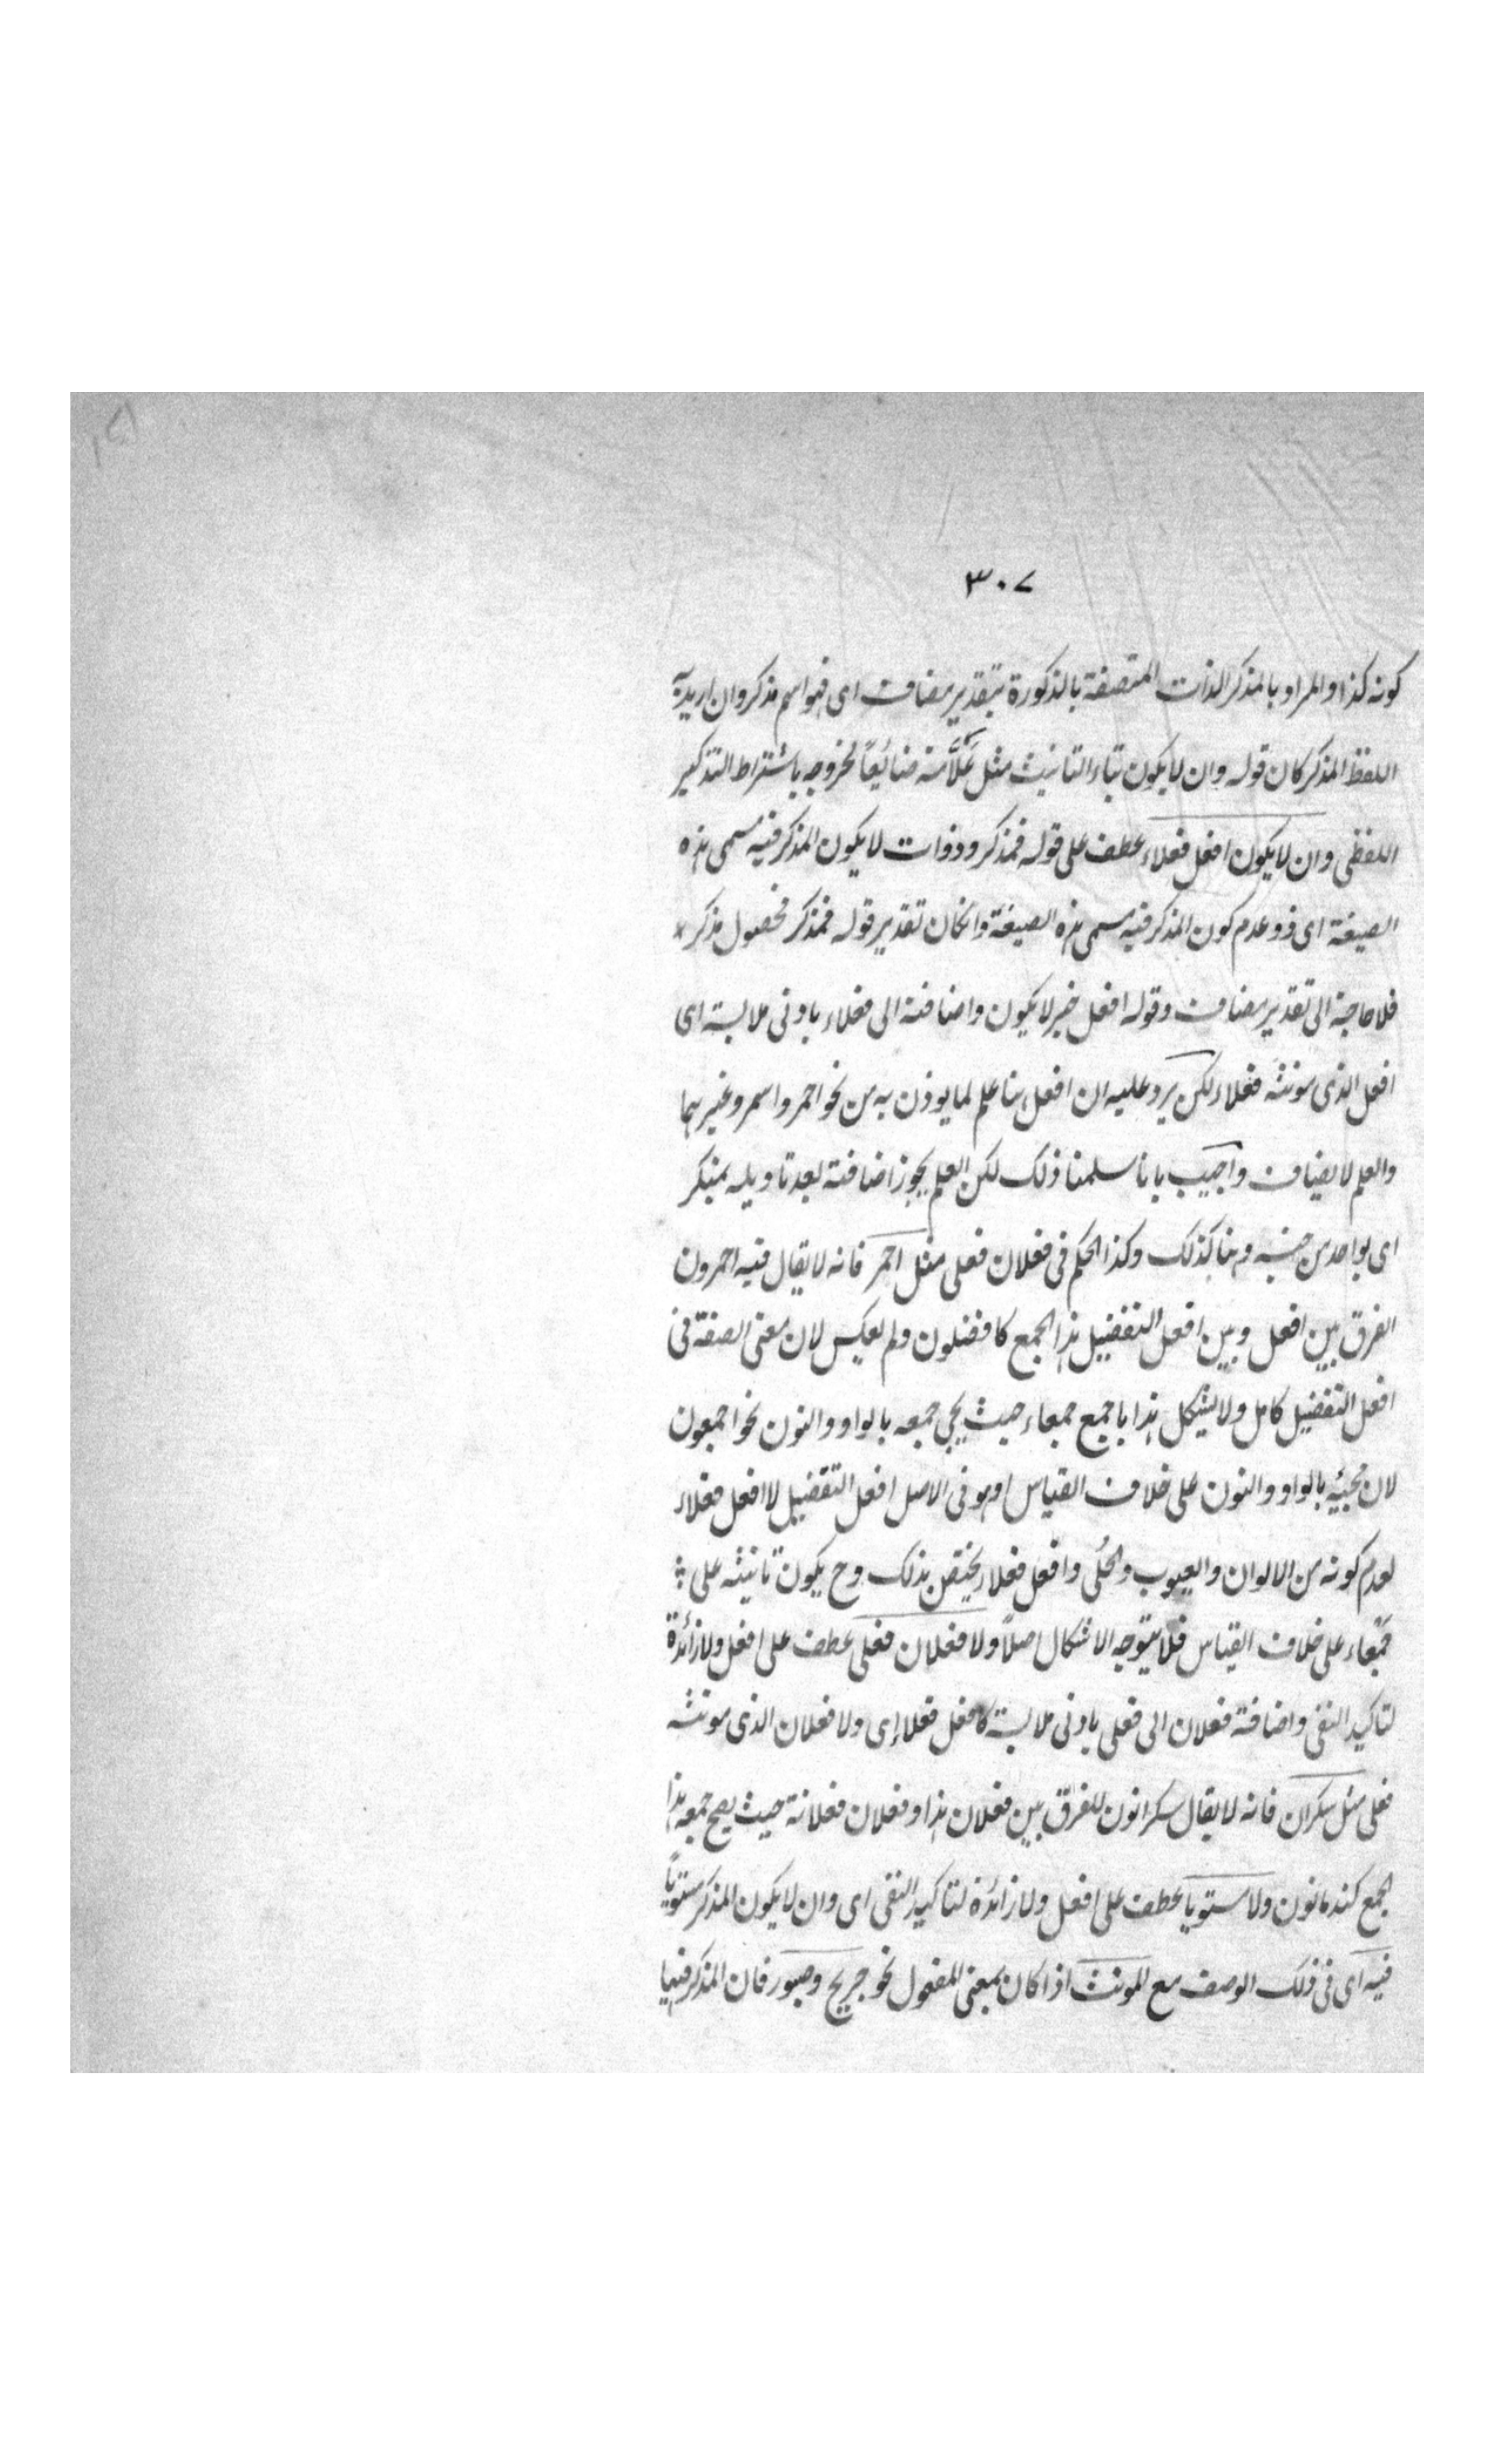 ٣٠٧
كونه كذا والمراد بالمذكر الذات المتصفة بالذكورة بتقدير مضاف اى فهو اسم مذكر وان اريد به
اللفظ المذكر كان قوله وان لا يكون بتاء التانيث مثل عَلَّامة ضائعًا لخروجه باشتراط التذكير
اللفظى وان لا يكون افعل فعلاء عطف على قوله فمذكر وذوات لا يكون المذكر فيه مسمى هذه
الصيغة اى ذو عدم كون المذكر فيه مسمى هذه الصيغة وانكان تقدير قوله فمذكر فحصول مذكر
فلا حاجة الى تقدير مضاف وقوله افعل خبر لا يكون واضافته الى فعلاء بادنى ملابسة اى
افعل الذى مونثه فعلاء لكن يرد عليه ان افعل هنا علم لما يوذن به من نحو احمر واسمر وغيرهما
والعلم لا يضاف واجيب بانا سلمنا ذلك لكن العلم يجوز اضافته بعد تاويله بمنكر
اى بواحد من جنسه وهنا كذلك وكذا الحكم فى فعلان فعلى مثل احمر فانه لا يقال فيه احمرون
الفرق بين افعل وبين افعل التفضيل هذا الجمع كافضلون ولم يعكس لان معنى الصفة فى
افعل التفضيل كامل ولا يشكل هذا باجمع جمعاء حيث يجى جمعه بالواو والنون نحو اجمعون
لان مجيئه بالواو والنون على خلاف القياس او هو فى الاصل افعل التفضيل لا افعل فعلاء
لعدم كونه من الالوان والعيوب والحُلى وافعل فعلاء يختص بذلك وح يكون تانيثه على
جمعاء على خلاف القياس فلا يتوجه الاشكال اصلًا ولا فعلان فعلى عطف على افعل ولا زائدة
لتاكيد النفى واضافة فعلان الى فعلى بادنى ملابسة كافعل فعلاء اى ولا فعلان الذى مونثه
فعلى مثل سكران فانه لا يقال سكرانون للفرق بين فعلان هذا وفعلان فعلانة حيث يصح جمعه هذا
الجمع كندمانون ولا مستويا عطف على افعل ولا زائدة لتاكيد النفى اى وان لا يكون المذكر مستويًا
فيه اى فى ذلك الوصف مع المونث اذا كان بمعنى المفعول نحو جريح وصبور فان المذكر فيهما